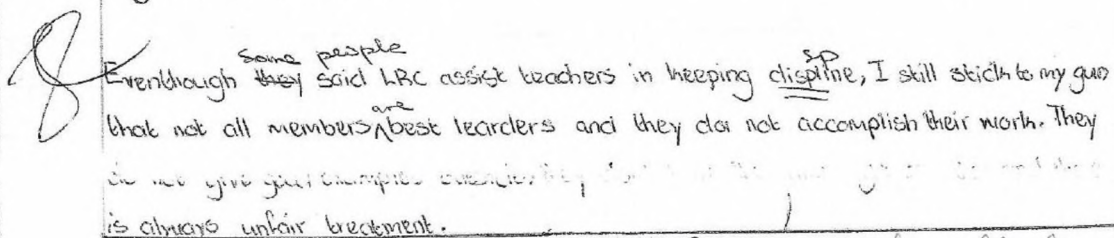 Eventhough some people said LRC assist teachers in keeping dispilne, I still stick to my gun
sp
that not all members are best learders and they do not accomplish their work. They
do not give good examples
is always unfair treatment.